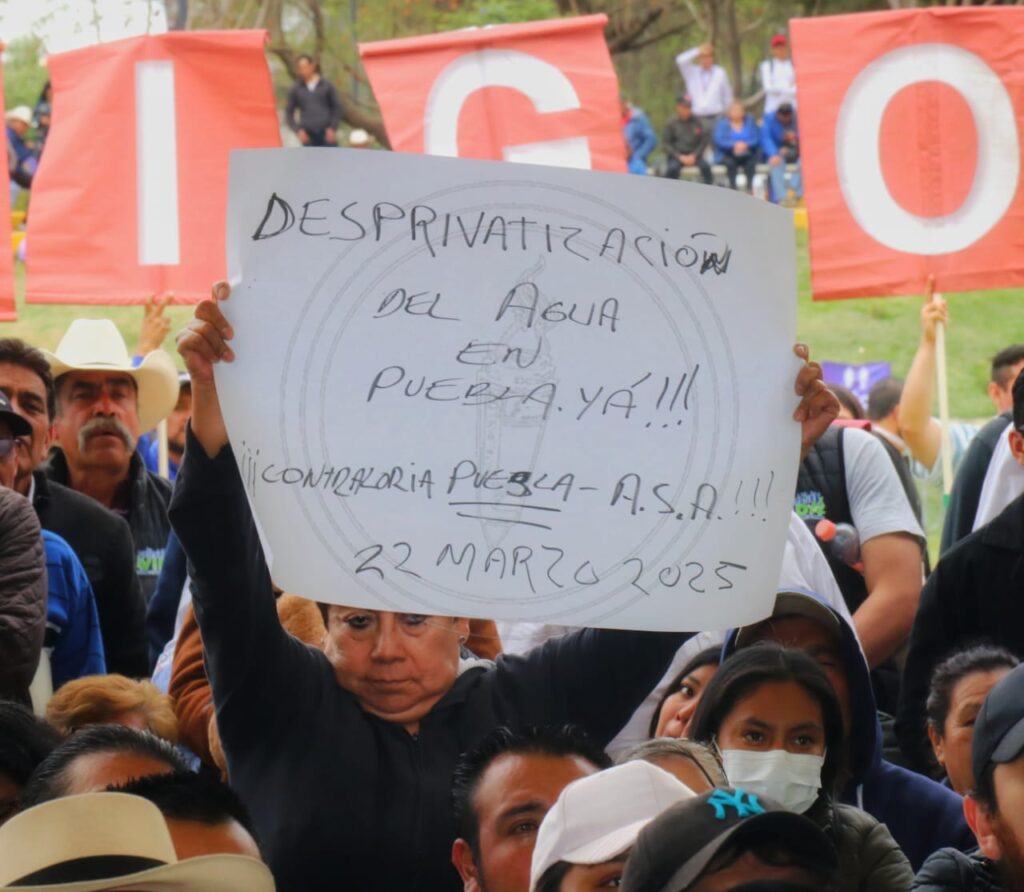 I G O
DESPRIVATIZACIÓN
DEL AGUA
EN
PUEBLA. YÁ!!!
¡¡¡CONTRALORIA PUEBLA - A.S.A.!!!
22 MARZO 2025
NY